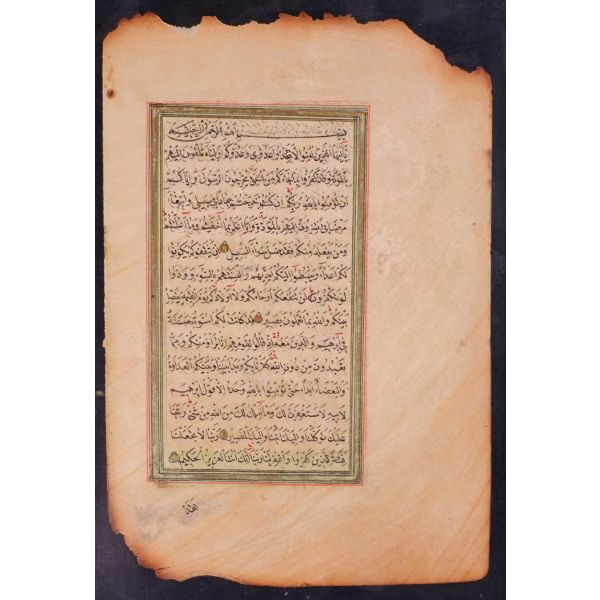 بسم الله الرحمن الرحيم
يا ايها الذين امنوا لا تتخذوا عدوي وعدوكم اولياء تلقون اليهم
بالمودة وقد كفروا بما جاءكم من الحق يخرجون الرسول واياكم
ان تؤمنوا بالله ربكم ان كنتم خرجتم جهادا في سبيلي وابتغاء
مرضاتي تسرون اليهم بالمودة وانا اعلم بما اخفيتم وما اعلنتم
ومن يفعله منكم فقد ضل سواء السبيل ان يثقفوكم يكونوا
لكم اعداء ويبسطوا اليكم ايديهم والسنتهم بالسوء وودوا
لو تكفرون لن تنفعكم ارحامكم ولا اولادكم يوم القيمة يفصل
بينكم والله بما تعملون بصير قد كانت لكم اسوة حسنة
في ابرهيم والذين معه اذ قالوا لقومهم انا برءاؤا منكم ومما
تعبدون من دون الله كفرنا بكم وبدا بيننا وبينكم العداوة
والبغضاء ابدا حتى تؤمنوا بالله وحده الا قول ابرهيم
لابيه لاستغفرن لك وما املك لك من الله من شيء ربنا
عليك توكلنا واليك انبنا واليك المصير ربنا لا تجعلنا
فتنة للذين كفروا واغفر لنا ربنا انك انت العزيز الحكيم
لقد